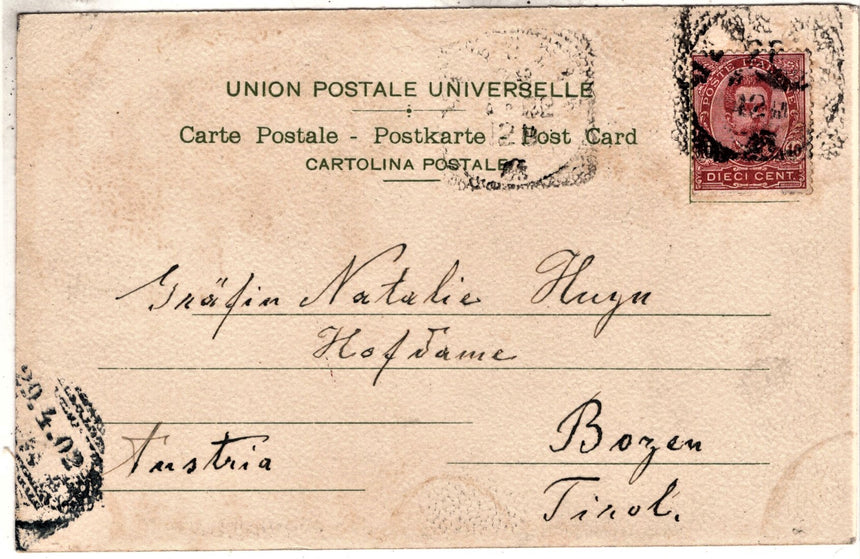 UNION POSTALE UNIVERSELLE
Carte Postale - Postkarte - Post Card
CARTOLINA POSTALE
POSTE ITALIANE
DIECI CENT.
Gräfin Natalie Huyn
Hofdame
Bozen
Austria
Tirol.
29.4.02